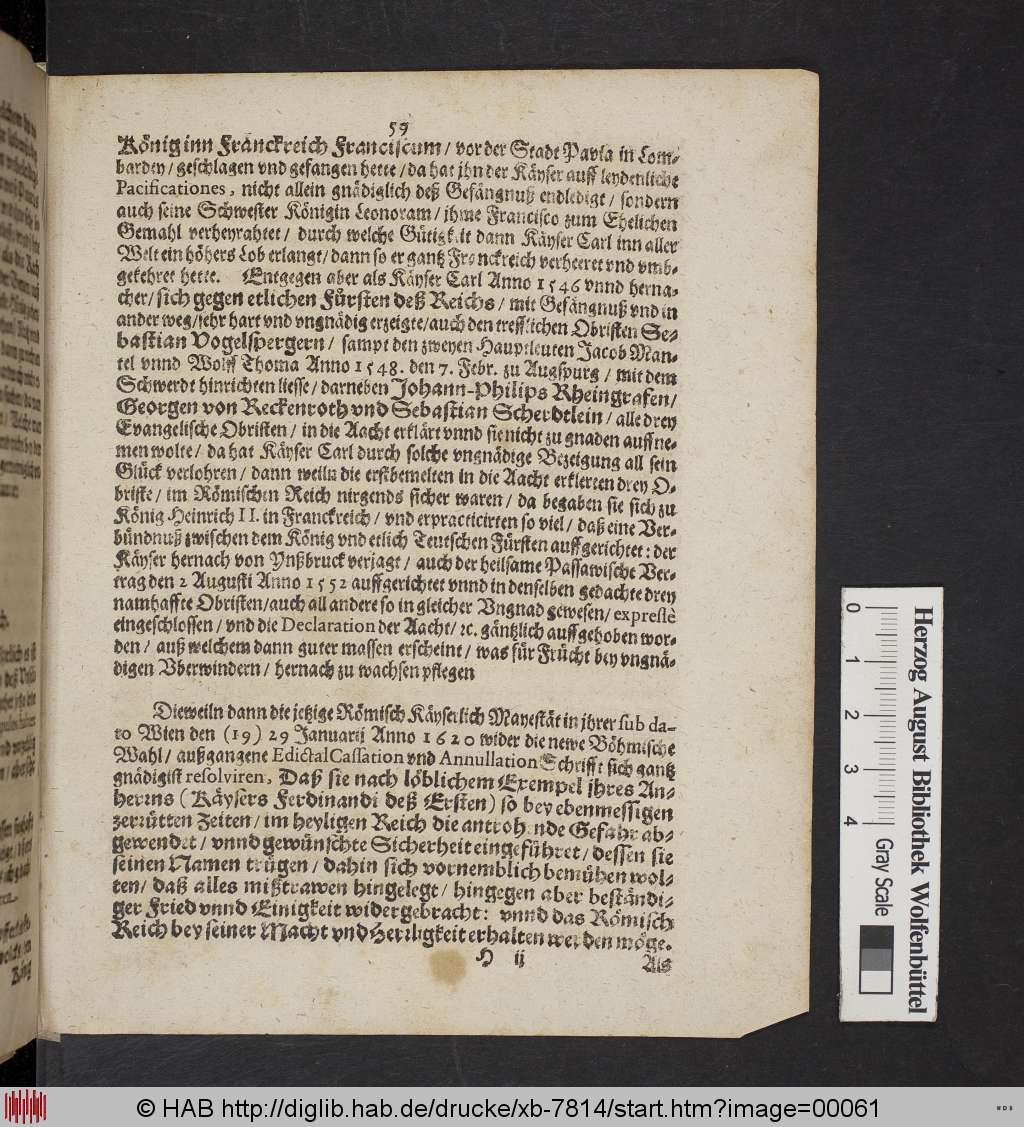 59
König inn Franckreich Franciscum / vor der Stadt Pavia in Lom-
bardey / geschlagen vnd gefangen hette / da hat jhn der Käyser auff leydenliche
Pacificationes, nicht allein gnädiglich deß Gefängnuß endledigt / sondern
auch seine Schwester Königin Leonoram / jhme Francisco zum Ehelichen
Gemahl verheyrahtet / durch welche Gütigkeit dann Käyser Carl inn aller
Welt ein höhers Lob erlangt / dann so er gantz Franckreich verheeret vnd vmb-
gekehret hette. Entgegen aber als Käyser Carl Anno 1546 vnnd herna-
cher / sich gegen etlichen Fürsten deß Reichs / mit Gefängnuß vnd in
ander weg / sehr hart vnd vngnädig erzeigte / auch den trefflichen Obristen Se-
bastian Vogelspergern / sampt den zweyen Hauptleuten Jacob Man-
tel vnnd Wolff Thoma Anno 1548. den 7. Febr. zu Augspurg / mit dem
Schwerdt hinrichten liesse / darneben Johann-Philips Rheingrafen /
Georgen von Reckenroth vnd Sebastian Scherdtlein / alle drey
Evangelische Obristen / in die Aacht erklärt vnnd sie nicht zu gnaden auffne-
men wolte / da hat Käyser Carl durch solche vngnädige Bezeigung all sein
Glück verlohren / dann weiln die erstbemelten in die Aacht erklerten drey O-
briste / im Römischen Reich nirgends sicher waren / da begaben sie sich zu
König Heinrich II. in Franckreich / vnd erpracticirten so viel / daß eine Ver-
bündnuß zwischen dem König vnd etlich Teutschen Fürsten auffgerichtet: der
Käyser hernach von Ynßbruck verjagt / auch der heilsame Passawische Ver-
trag den 2 Augusti Anno 1552 auffgerichtet vnnd in denselben gedachte drey
namhaffte Obristen / auch all andere so in gleicher Vngnad gewesen / expressè
eingeschlossen / vnd die Declaration der Aacht / ꝛc. gäntzlich auffgehoben wor-
den / auß welchem dann guter massen erscheint / was für Frücht bey vngnä-
digen Vberwindern / hernach zu wachsen pflegen
Dieweiln dann die jetzige Römisch Käyserlich Mayestät in jhrer sub da-
to Wien den (19) 29 Januarii Anno 1620 wider die newe Böhmische
Wahl / außgangene Edictal Cassation vnd Annullation Schrifft sich gantz
gnädigist resolviren, Daß sie nach löblichem Exempel jhres An-
herrns (Käysers Ferdinandi deß Ersten) so bey ebenmessigen
zerrütten Zeiten / im heyligen Reich die antrohende Gefahr ab-
gewendet / vnnd gewünschte Sicherheit eingeführet / dessen sie
seinen Namen trügen / dahin sich vornemblich bemühen wol-
ten / daß alles mißtrawen hingelegt / hingegen aber beständi-
ger Fried vnnd Einigkeit widergebracht: vnnd das Römisch
Reich bey seiner Macht vnd Herrligkeit erhalten werden möge.
H ij
Als
Herzog August Bibliothek Wolfenbüttel
0 1 2 3 4
Gray Scale
© HAB http://diglib.hab.de/drucke/xb-7814/start.htm?image=00061